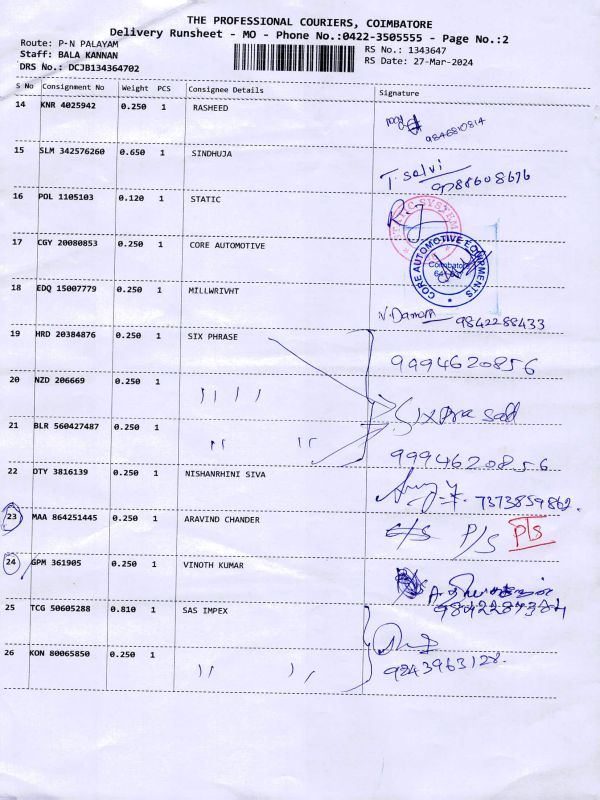 THE PROFESSIONAL COURIERS, COIMBATORE
Delivery Runsheet - MO - Phone No.:0422-3505555 - Page No.:2
Route: P-N PALAYAM
Staff: BALA KANNAN
DRS No.: DCJB134364702
RS No.: 1343647
RS Date: 27-Mar-2024
S No Consignment No Weight PCS Consignee Details Signature
14 KNR 4025942 0.250 1 RASHEED
9846810814
15 SLM 342576260 0.650 1 SINDHUJA
T. Selvi
9788608676
16 POL 1105103 0.120 1 STATIC
17 CGY 20080853 0.250 1 CORE AUTOMOTIVE
CORE AUTOMOTIVE
Coimbatore
18 EDQ 15007779 0.250 1 MILLWRIVHT
9842288433
19 HRD 20384876 0.250 1 SIX PHRASE
9994620856
20 NZD 206669 0.250 1
21 BLR 560427487 0.250 1
9994620856
22 DTY 3816139 0.250 1 NISHANRHINI SIVA
7373859862.
23 MAA 864251445 0.250 1 ARAVIND CHANDER
P/S
24 GPM 361905 0.250 1 VINOTH KUMAR
25 TCG 50605288 0.810 1 SAS IMPEX
26 KON 80065850 0.250 1
9843963128.